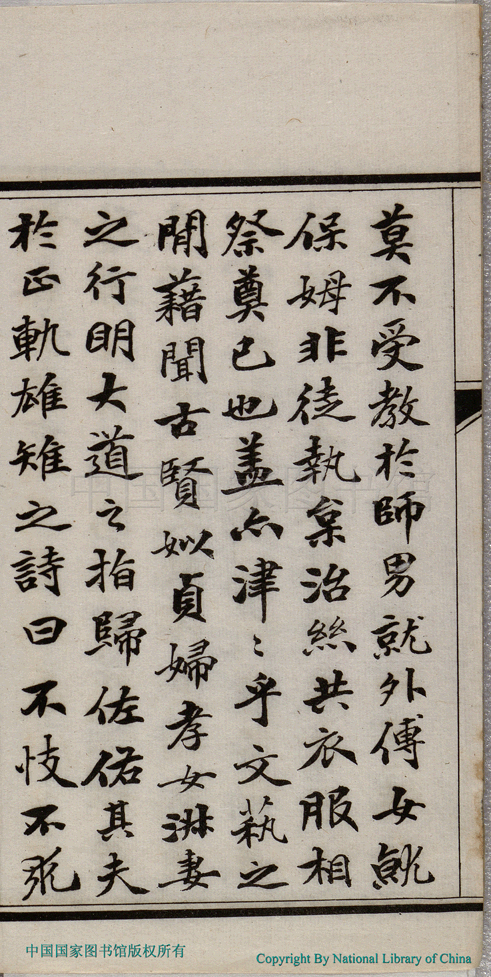 莫不受教於師男就外傅女就
保姆非徒執枲治絲共衣服相
祭奠已也盖亦津〻乎文藝之
閒藉聞古賢姒貞婦孝女淑妻
之行明大道之指歸佐偌其夫
於正軌雄雉之詩曰不忮不求
中国国家图书馆
中国国家图书馆版权所有
Copyright By National Library of China